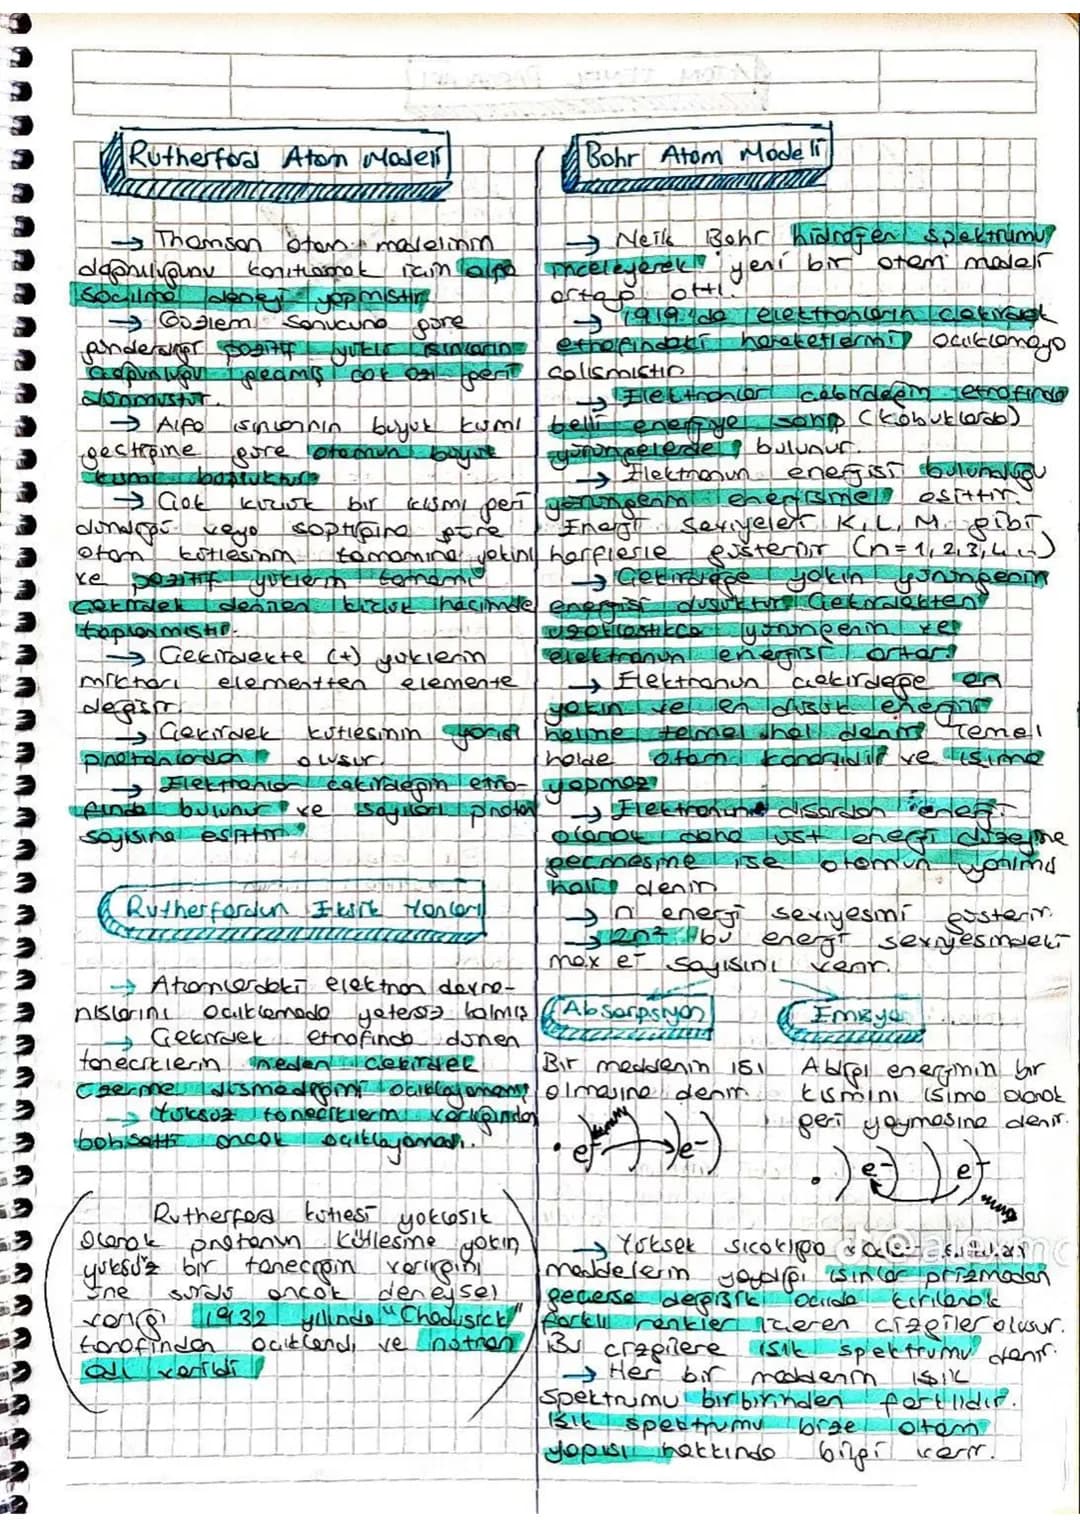 Rutherford Atom Modeli
→ Thomson atom modelinin
doğruluğunu kanıtlamak için alfa
saçılma deneyi yapmıştır.
→ Gözlem sonucuna göre
gönderdiği pozitif yüklü ışınların
geçmiş çok azı geri
dönmüştür.
→ Alfa ışınlarının büyük kısmı
geçtiğine göre atomun büyük
kısmı boşluktur.
→ Çok küçük bir kısmı geri
döndüğü veya saptığına göre
atom kütlesinin tamamına yakını
ve pozitif yüklerin tamamı
çekirdek denilen küçük hacimde
toplanmıştır.
→ Çekirdekte (+) yüklerin
miktarı elementten elemente
değişir.
→ Çekirdek kütlesinin yarısı
protonlardan oluşur.
→ Elektronlar çekirdeğin etra-
fında bulunur ve sayıları proton
sayısına eşittir.
Rutherfordun Eksik Yanları
→ Atomlardaki elektron davra-
nışlarını açıklamada yetersiz kalmış
→ Çekirdek etrafında dönen
taneciklerin neden çekirdek
üzerine düşmediğini açıklayamamış
→ Yüksüz taneciklerin varlığından
bahsetti ancak açıklayamadı.
Rutherford kütlesi yaklaşık
olarak protonun kütlesine yakın
yüksüz bir taneciğin varlığını
öne sürdü ancak deneysel
varlığı 1932 yılında "Chadwick"
tarafından açıklandı ve nötron
adı verildi
Bohr Atom Modeli
→ Neils Bohr hidrojen spektrumu
inceleyerek yeni bir atom modeli
ortaya attı.
→ 1919'da elektronların çekirdek
etrafındaki hareketlerini açıklamaya
çalışmıştır
→ Elektronlar çekirdeğin etrafında
belli enerjiye sahip (kabuklarda)
yörüngelerde bulunur.
→ Elektronun enerjisi bulunduğu
yörüngenin enerjisine eşittir.
Enerji seviyeleri K, L, M gibi
harflerle gösterilir (n=1,2,3,4...)
→ Çekirdeğe yakın yörüngenin
enerjisi düşüktür. Çekirdekten
uzaklaştıkça yörüngenin ve
elektronun enerjisi artar.
→ Elektronun çekirdeğe en
yakın ve en düşük enerjili
haline temel hal denir. Temel
halde atom kararlıdır ve ışıma
yapmaz
→ Elektronun dışardan enerji
alarak daha üst enerji düzeyine
geçmesine ise atomun uyarılmış
hali denir
→ n enerji seviyesini gösterir.
→ 2n² bu enerji seviyesindeki
max e⁻ sayısını verir.
Absorpsiyon
Bir maddenin ısı
olmasına denir
e⁻
e⁻
Emisyon
Aldığı enerjinin bir
kısmını ışıma olarak
geri yaymasına denir.
e⁻
e⁻
→ Yüksek sıcaklığa
maddelerin yaydığı ışınlar prizmadan
geçerse değişik açıda kırılarak
farklı renkler içeren çizgiler oluşur.
Bu çizgilere ışık spektrumu denir.
→ Her bir maddenin ışık
spektrumu birbirinden farklıdır.
Işık spektrumu bize atom
yapısı hakkında bilgi verir.